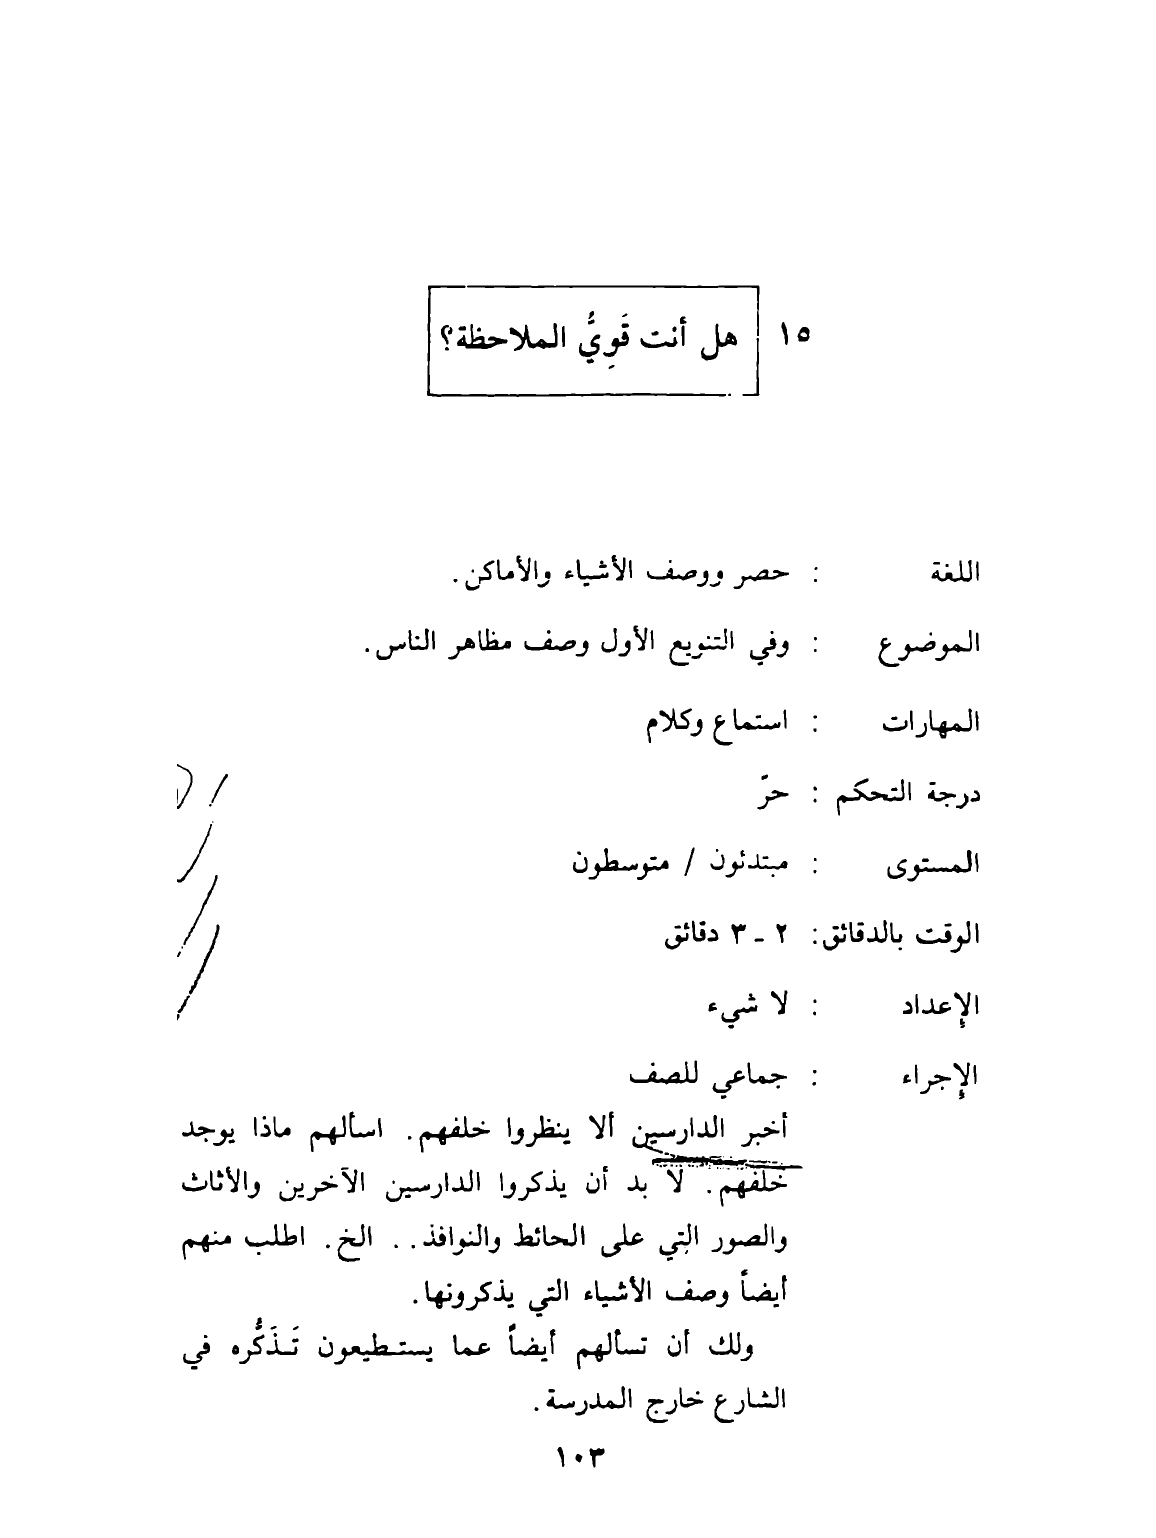 ١٥ هل أنت قَوِيُّ الملاحظة؟
اللغة : حصر ووصف الأشياء والأماكن.
الموضوع : وفي التنويع الأول وصف مظاهر الناس.
المهارات : استماع وكلام
درجة التحكم : حرّ
المستوى : مبتدئون / متوسطون
الوقت بالدقائق: ٢ - ٣ دقائق
الإعداد : لا شيء
الإجراء : جماعي للصف
أخبر الدارسين ألا ينظروا خلفهم. اسألهم ماذا يوجد
خلفهم. لا بد أن يذكروا الدارسين الآخرين والأثاث
والصور التي على الحائط والنوافذ.. الخ. اطلب منهم
أيضاً وصف الأشياء التي يذكرونها.
ولك أن تسألهم أيضاً عما يستطيعون تَذَكُّره في
الشارع خارج المدرسة.
١٠٣